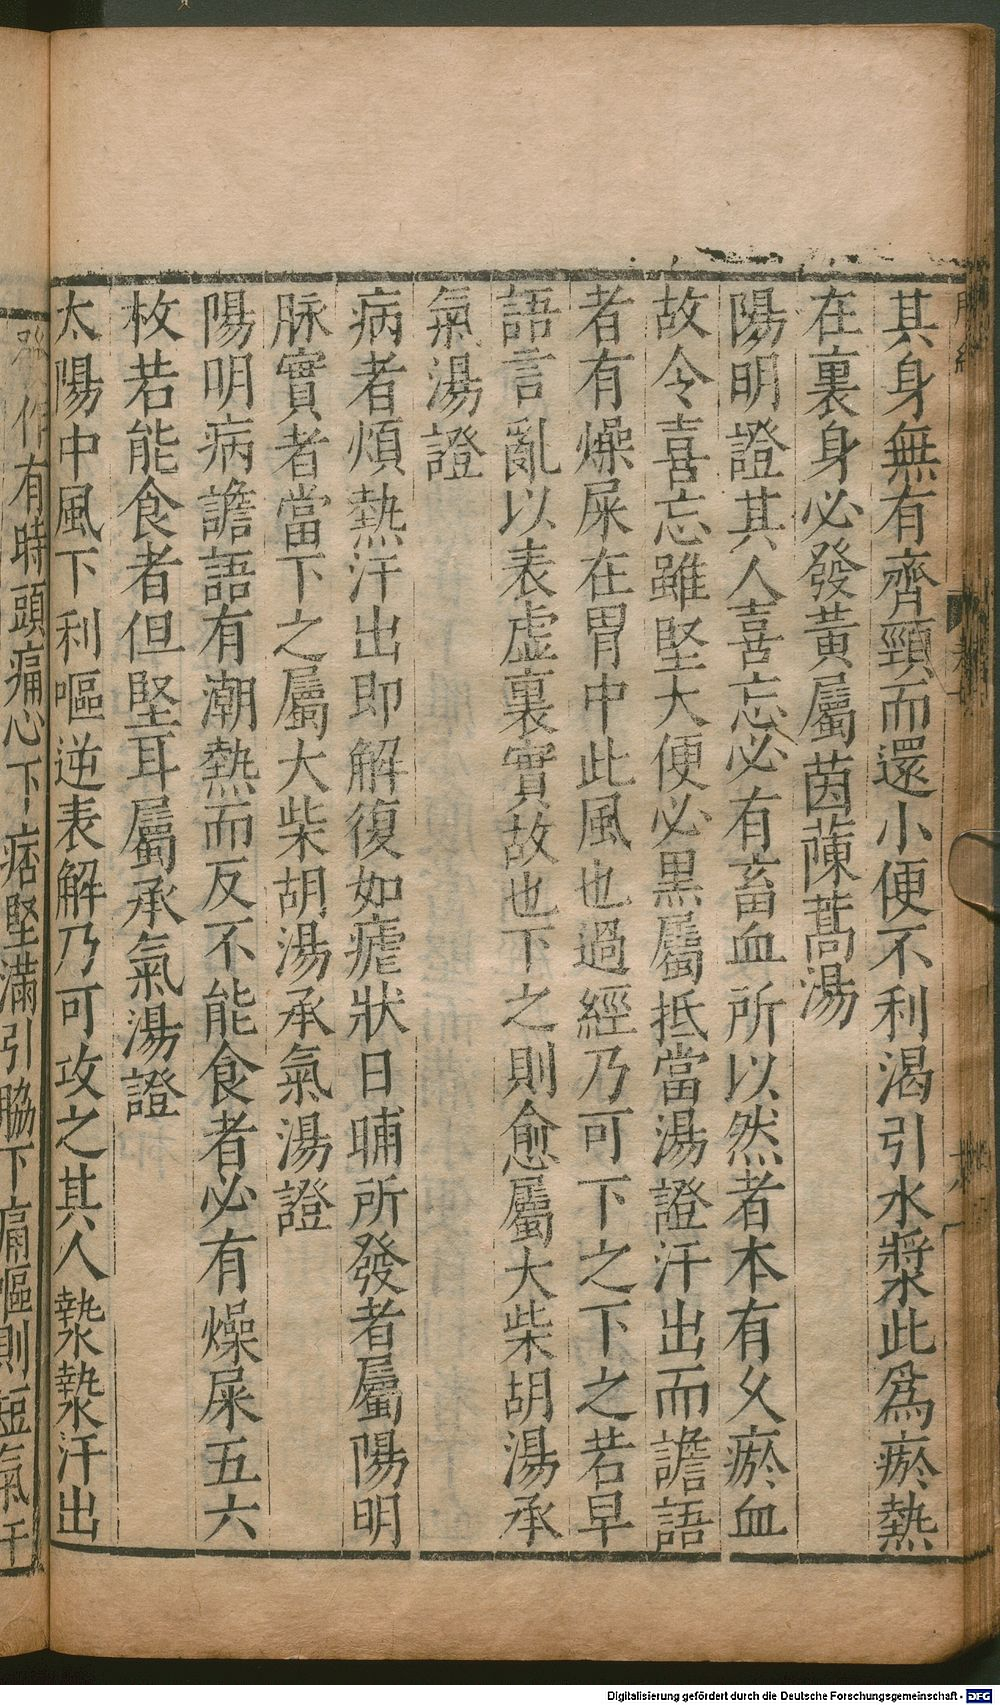 其身無有齊頸而還小便不利渴引水漿此爲瘀熱
在裏身必發黃屬茵蔯蒿湯
陽明證其人喜忘必有畜血所以然者本有久瘀血
故令喜忘雖堅大便必黑屬抵當湯證汗出而譫語
者有燥屎在胃中此風也過經乃可下之下之若早
語言亂以表虛裏實故也下之則愈屬大柴胡湯承
氣湯證
病者煩熱汗出即解復如瘧狀日晡所發者屬陽明
脉實者當下之屬大柴胡湯承氣湯證
陽明病譫語有潮熱而反不能食者必有燥屎五六
枚若能食者但堅耳屬承氣湯證
太陽中風下利嘔逆表解乃可攻之其人漐漐汗出
作有時頭痛心下痞堅滿引脇下痛嘔則短氣汗
Digitalisierung gefördert durch die Deutsche Forschungsgemeinschaft - DFG